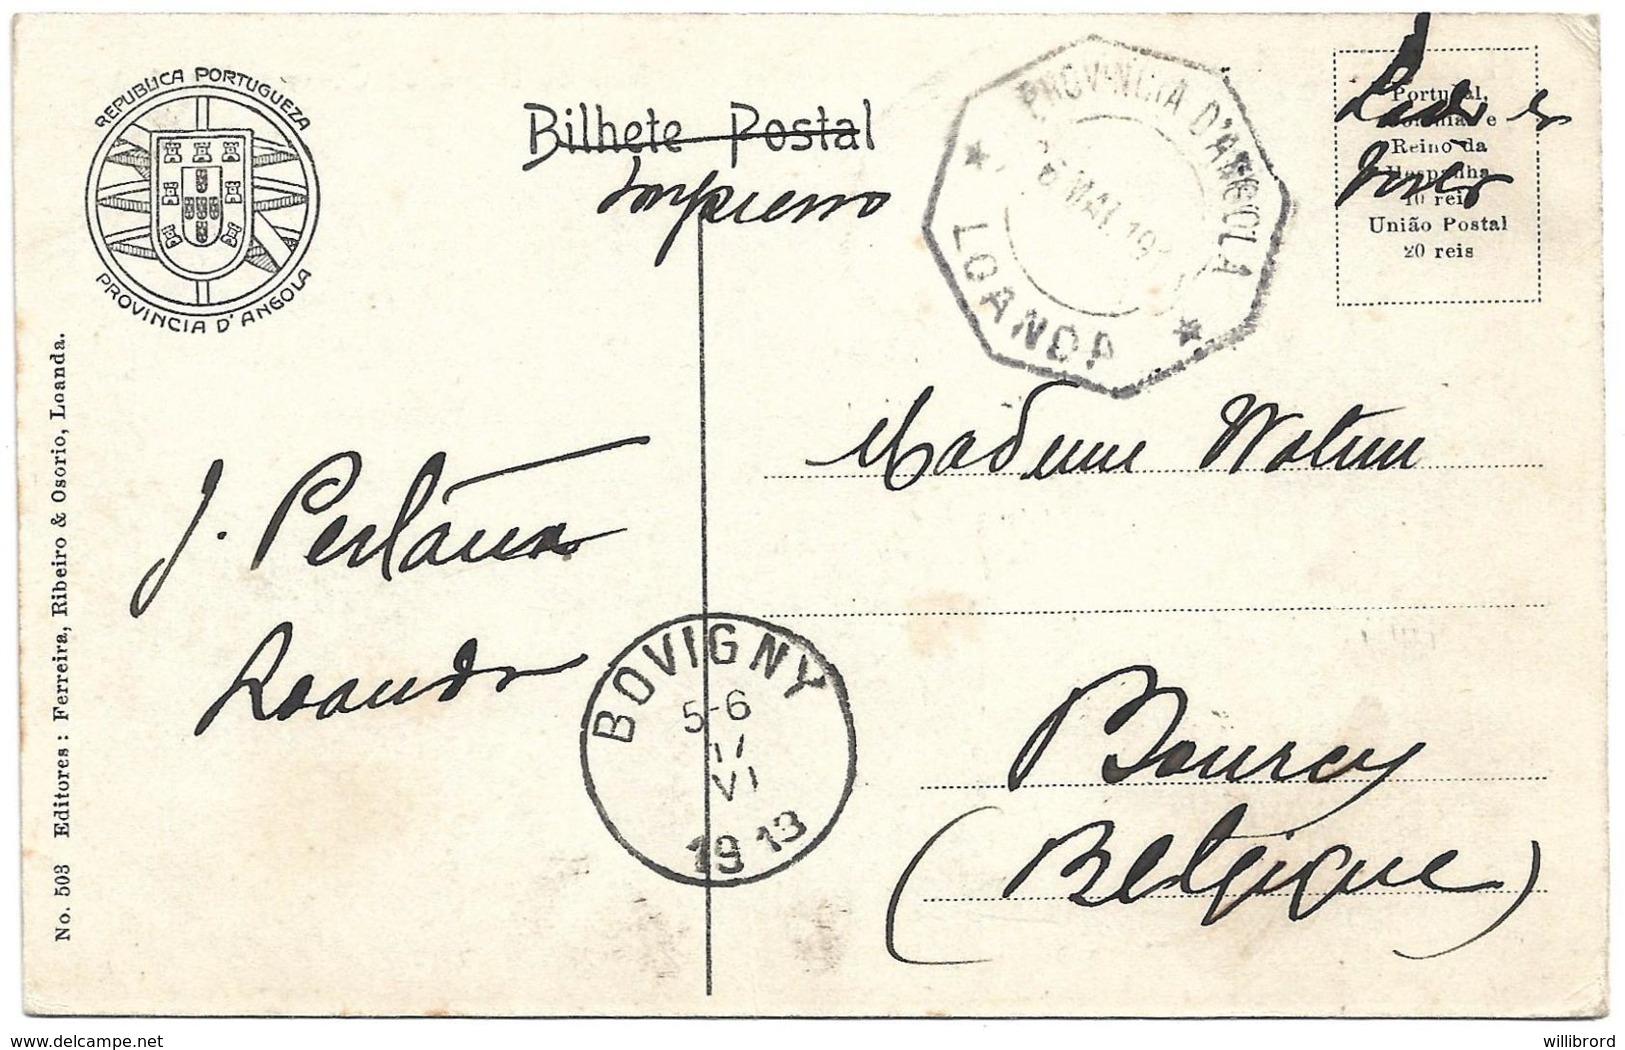 REPUBLICA PORTUGUEZA
PROVINCIA D'ANGOLA
Bilhete Postal
Impresso
PROVINCIA D'ANGOLA
6 MAI. 19
LOANDA
Portugal,
Colonias e
Reino da
Hespanha
10 reis
União Postal
20 reis
No. 503 Editores: Ferreira, Ribeiro & Osorio, Loanda.
J.
Loanda
Madame
BOVIGNY
5-6
VI
1913
Bourcy
(Belgique)
delcampe.net
willibrord